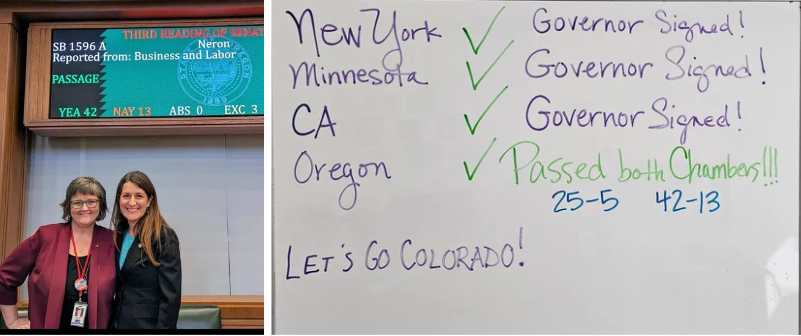 THIRD READING OF SENAT
SB 1596 A Neron
Reported from: Business and Labor
PASSAGE
YEA 42 NAY 13 ABS 0 EXC 3
New York ✓ Governor Signed!
Minnesota ✓ Governor Signed!
CA ✓ Governor Signed!
Oregon ✓ Passed both Chambers!!!
25-5 42-13
LET'S GO COLORADO!